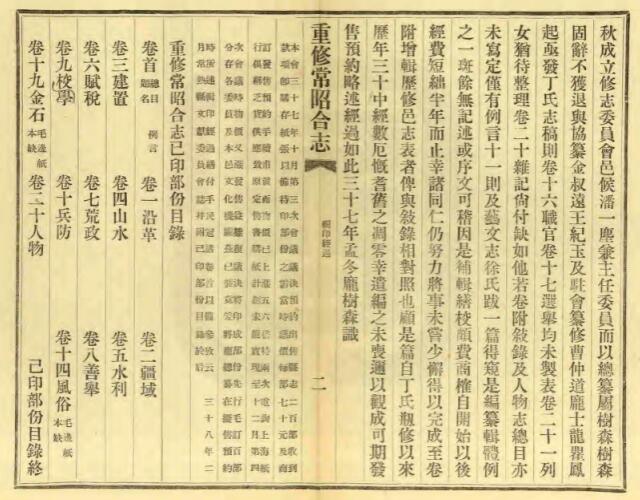 秋成立修志委員會邑候潘一塵兼主任委員而以總纂屬樹森樹森
固辭不獲退與協纂金叔遠王紀玉及駐會纂修曹仲道龐士龍瞿鳳
起亟發丁氏志稿則卷十六職官卷十七選舉均未製表卷二十一列
女猶待整理卷二十雜記尚付缺如他若卷附敘錄及人物志總目亦
未寫定僅有例言十一則及藝文志徐氏跋一篇得窺是編纂輯體例
之一斑餘無記述或序文可稽因是補輯繕校頗費商榷自開始以後
經費短絀半年而止幸諸同仁仍努力將事未嘗少懈得以完成至卷
附增輯歷修邑志表者俾與敘錄相對照也顧是篇自丁氏瓶修以來
歷年三十中經數厄慨耆舊之凋零幸遺編之未喪邇以觀成可期發
售預約略述經過如此三十七年孟冬龐樹森識
重修常昭合志
輯印經過
二
本會三十七年十月第三次會議議決預約出售縣志二百部收到
款項卽購存紙張以備特印部份之需當時
重修常昭合志已印部份目錄
卷首 總目 題名 例言
卷一沿革
卷二疆域
卷三建置
卷四山水
卷五水利
卷六賦稅
卷七荒政
卷八善舉
卷九校學
卷十兵防
卷十四風俗 毛邊紙本缺
卷十九金石 毛邊紙本缺
卷二十人物
己印部份目錄終